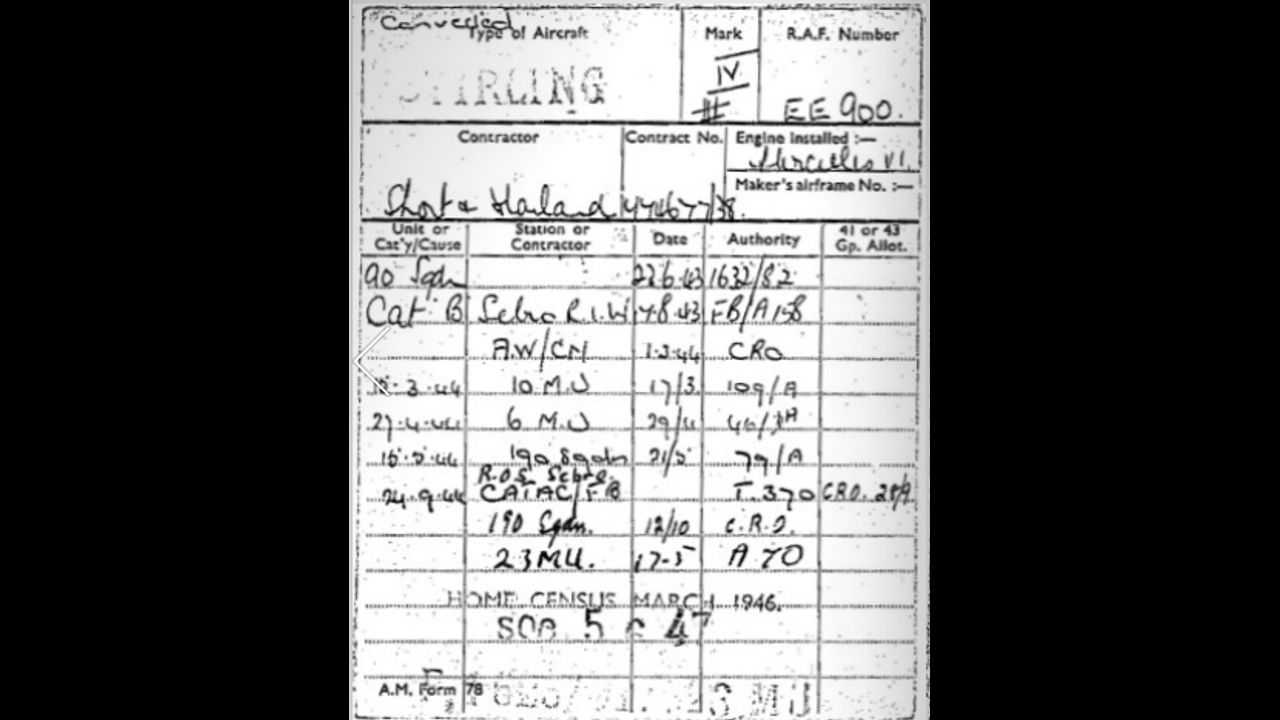 Converted
Type of Aircraft Mark R.A.F. Number
STIRLING IV EE 900.
Contractor Contract No. Engine Installed :—
Hercules VI.
Maker's airframe No. :—
Short & Harland
Unit or Cat'y/Cause Station or Contractor Date Authority 41 or 43 Gp. Allot.
90 Sqdn 22.6.43 1632/82
Cat. B Sebro R.I.W. 7.8.43 FB/A158
A.W/CN 1.3.44 CRO
3.44 10 M.U 17/3 109/A
6 M.U
190 Sqdn 21/5 79/A
R.O.S. Sebro.
24.9.44 CAT AC/FB T.370 CRO. 28/9
190 Sqdn. 12/10 C.R.O.
23 MU. 17-5 A 70
HOME CENSUS MARCH 1946.
5 47
A.M. Form 78